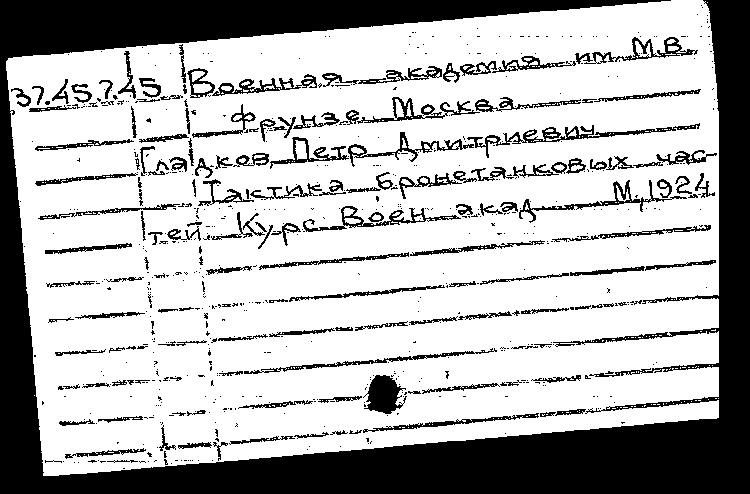 37.45.7.45 Военная академия им. М.В.
Фрунзе. Москва
Гладков, Петр Дмитриевич
Тактика бронетанковых час-
тей. Курс Воен. акад. М., 1924